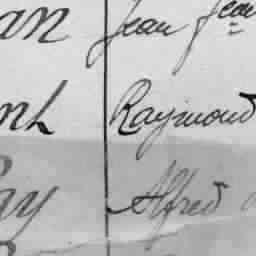 an Jean Jean
nh Raymond
ay Alfred